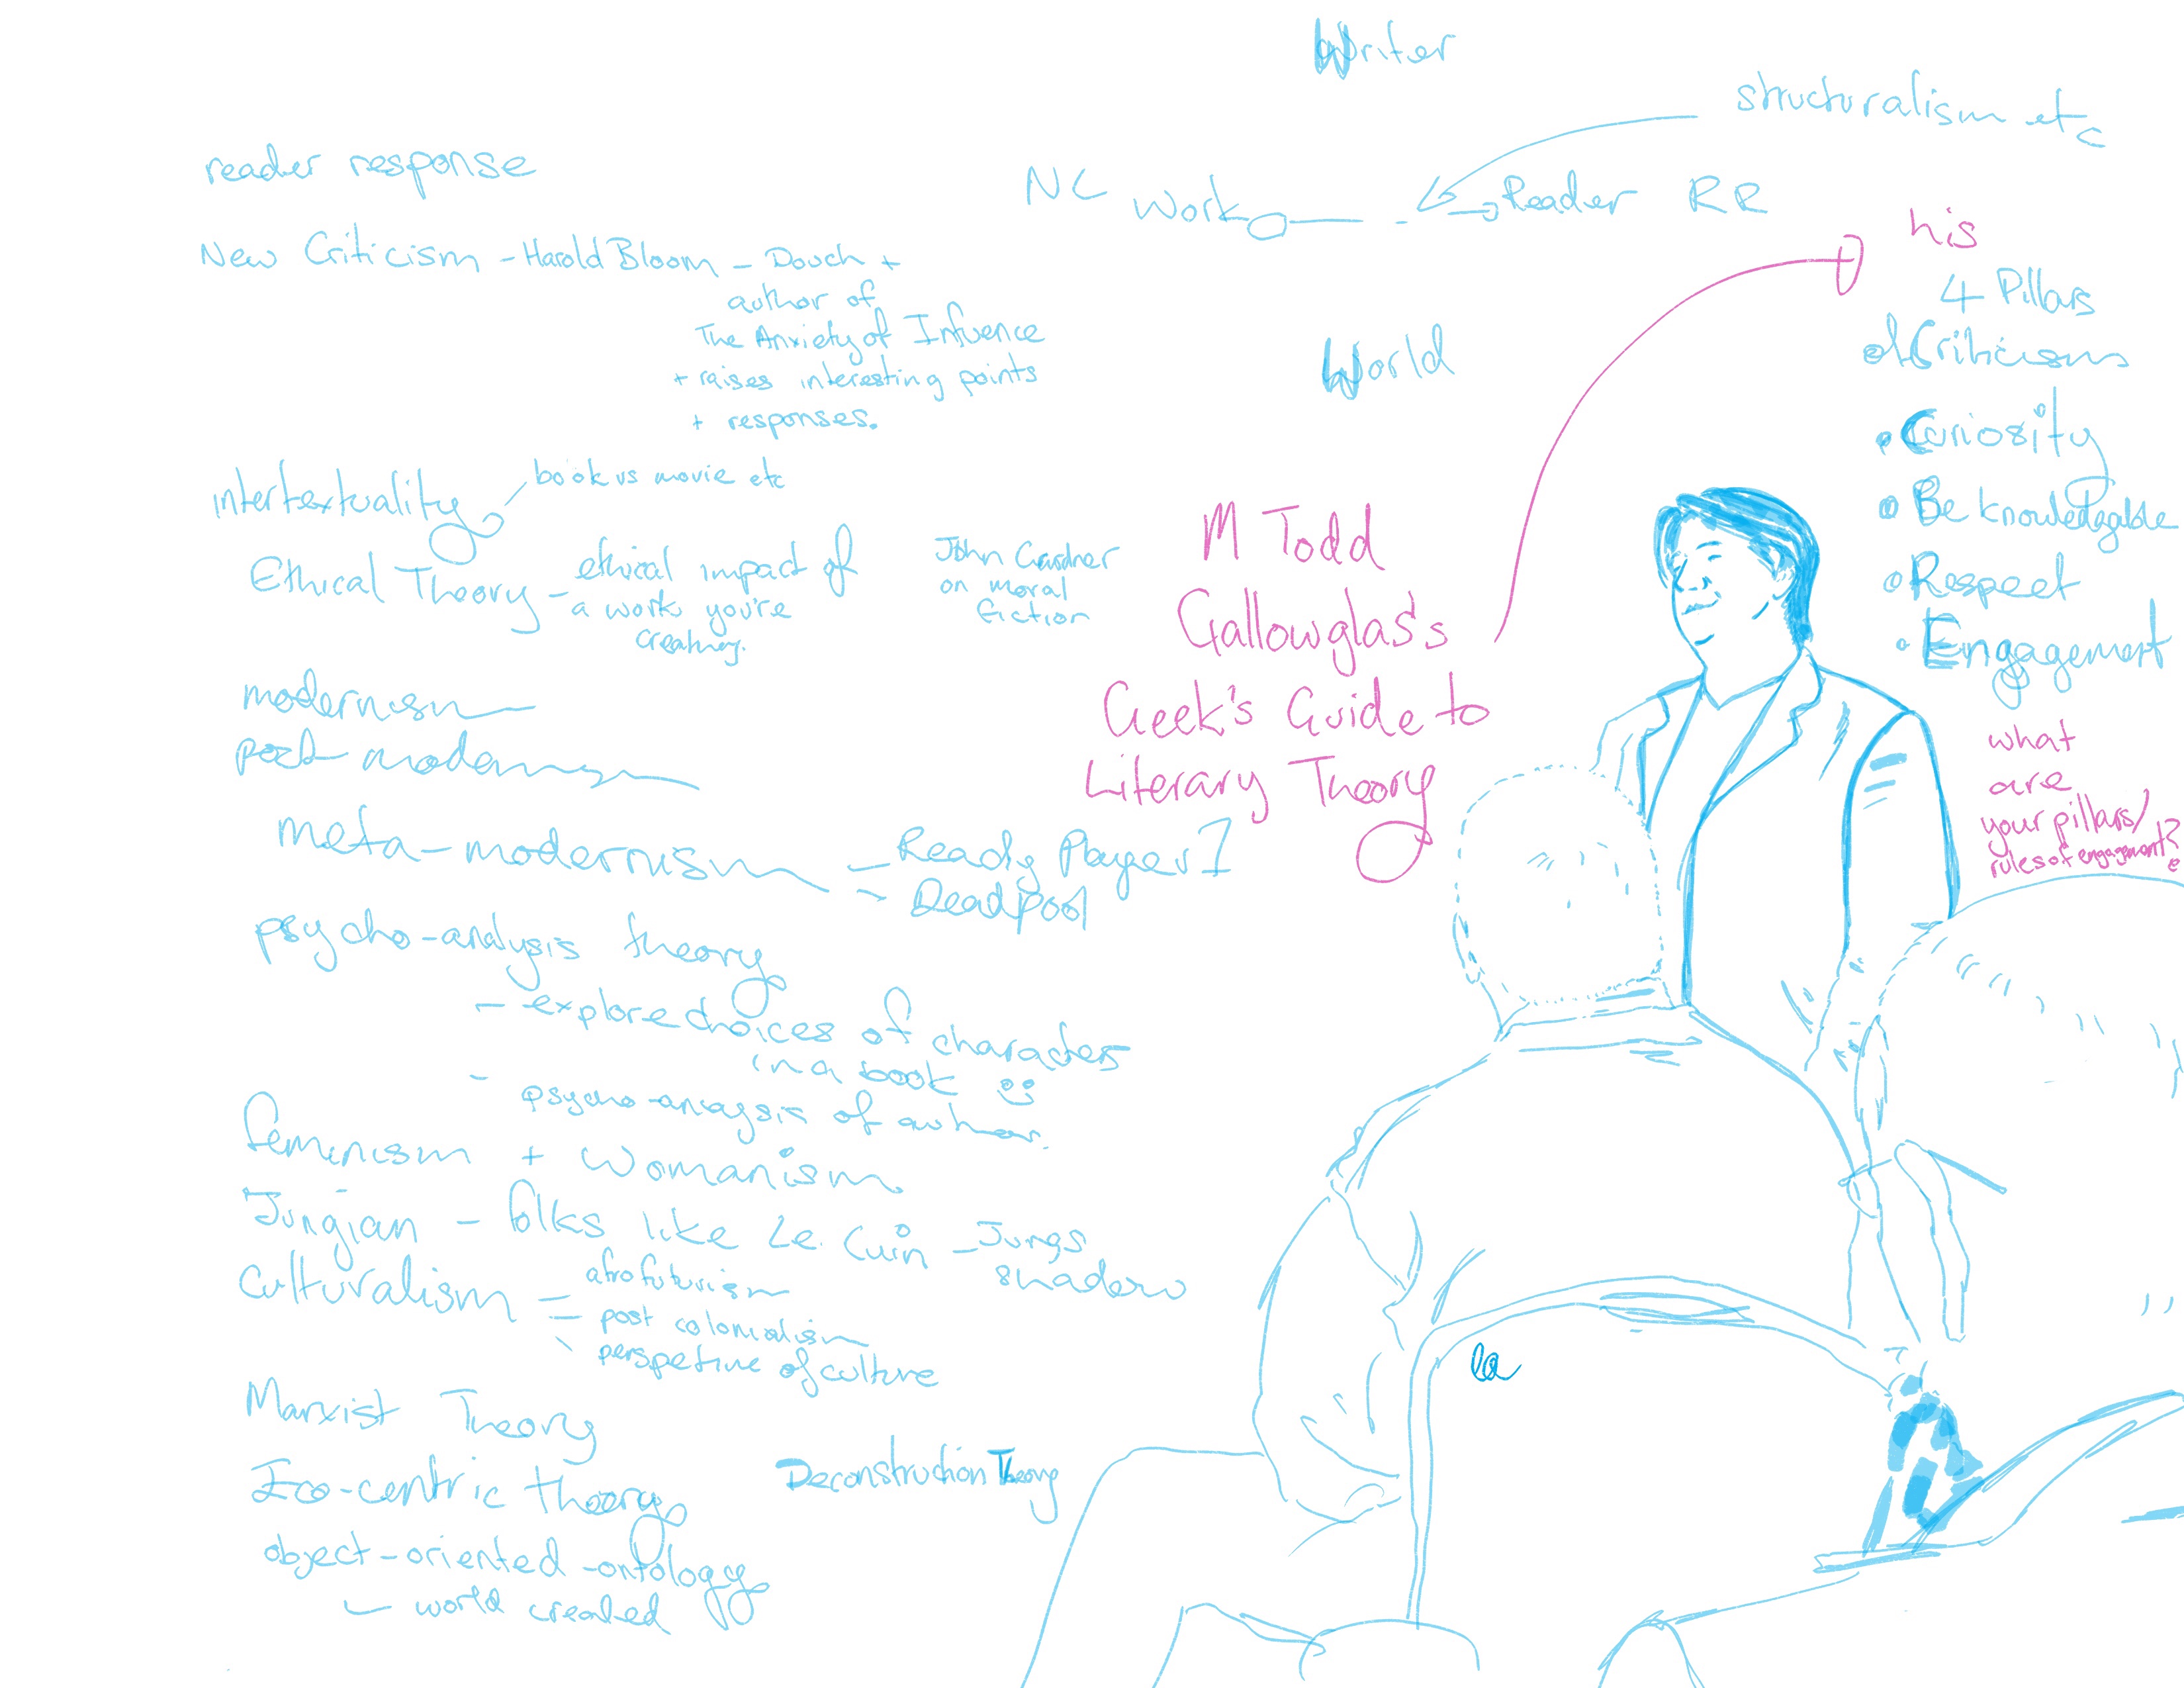 reader response
New Criticism - Harold Bloom - Douch +
author of
The Anxiety of Influence
+ raises interesting points
+ responses.
intertextuality
book vs movie etc
Ethical Theory - ethical impact of
a work you're
creating.
John Gardner
on moral
fiction
modernism
post-modernism
meta-modernism - Ready Player 1
- Deadpool
psycho-analysis theory
- explore choices of characters
in a book
- psycho-analysis of author.
feminism + womanism
Jungian - folks like Le Guin - Jungs
shadow
Culturalism - afrofuturism
- post colonialism
perspetive of culture
Marxist Theory
Eco-centric theory
Deconstruction Theory
object-oriented-ontology
- world created
Writer
structuralism etc
NC Work Reader RR
World
M Todd
Gallowglass's
Geek's Guide to
Literary Theory
his
4 Pillars
of Criticism
Curiosity
Be knowledgable
Respect
Engagement
what
are
your pillars/
rules of engagement?